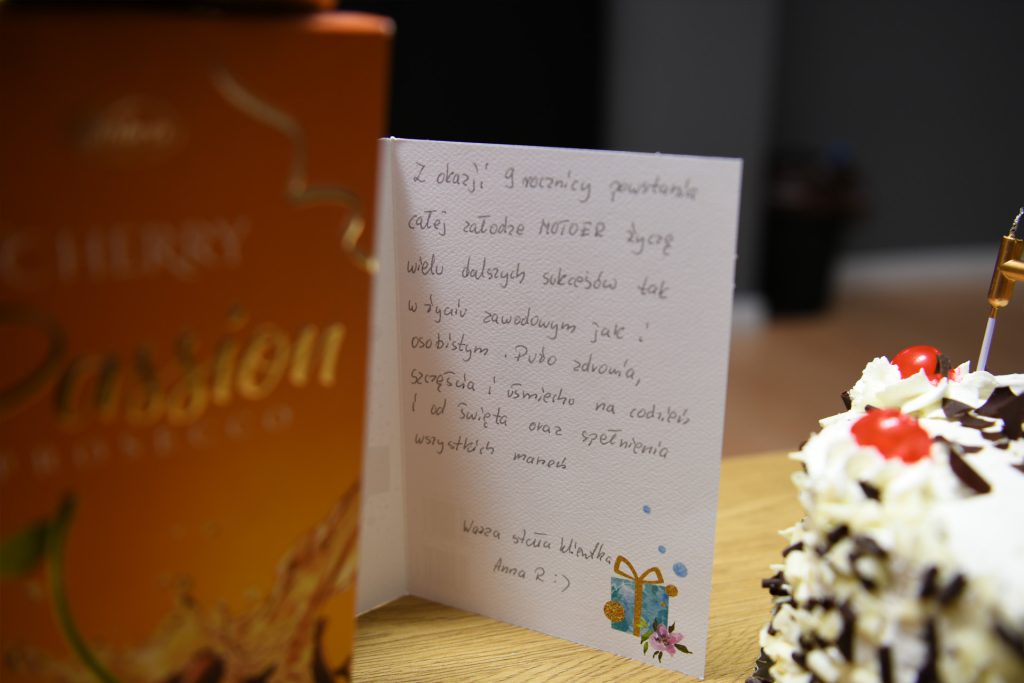 CHERRY
Passion
PROSECCO
Z okazji 9 rocznicy powstania
całej załodze MOTOER życzę
wielu dalszych sukcesów tak
w życiu zawodowym jak i
osobistym. Dużo zdrowia,
szczęścia i uśmiechu na codzień
i od święta oraz spełnienia
wszystkich marzeń
Wasza stała klientka
Anna R :)